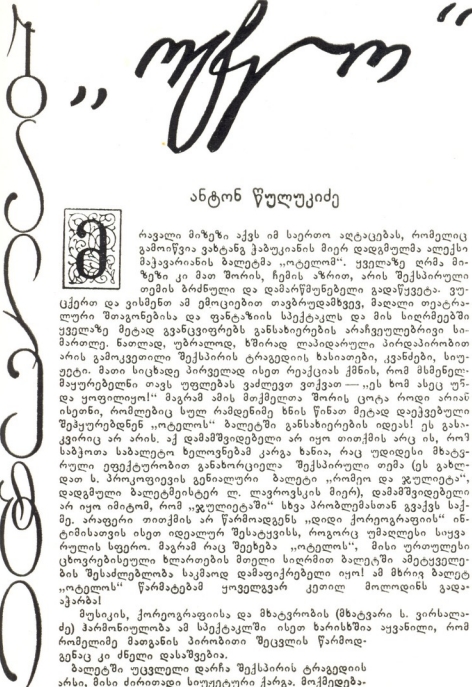 ანტონ წულუკიძე
მრავალი მიზეზი აქვს იმ საერთო აღტაცებას, რომელიც
გამოიწვია ვახტანგ ჭაბუკიანის მიერ დადგმულმა ალექსი
მაჭავარიანის ბალეტმა „ოტელომ“. ყველაზე ღრმა მი-
ზეზი კი მათ შორის, ჩემის აზრით, არის შექსპირული
თემის ბრძნული და დამარწმუნებელი გადაწყვეტა. ვუ-
ცქერთ და ვისმენთ ამ ემოციებით თავბრუდამხვევ, მაღალი თეატრა-
ლური შთაგონებისა და ფანტაზიის სპექტაკლს და მის სიღრმეებში
ყველაზე მეტად გვანცვიფრებს განსახიერების არაჩვეულებრივი სი-
მართლე. ნათლად, უბრალოდ, ხშირად ლაპიდარული პირდაპირობით
არის გამოკვეთილი შექსპირის ტრაგედიის ხასიათები, კვანძები, სიუ-
ჟეტი. მათი სიცხადე პირველად ისეთ რეაქციას ქმნის, რომ მსმენელ-
მაყურებელნი თავს უფლებას ვაძლევთ ვთქვათ — „ეს ხომ ასეც უნ-
და ყოფილიყო!“ მაგრამ ამის მთქმელთა შორის ცოტა როდი არიან
ისეთნი, რომლებიც სულ რამდენიმე ხნის წინათ მეტად დაეჭვებული
შეჰყურებდნენ „ოტელოს“ ბალეტში განსახიერების იდეას! ეს გასა-
კვირიც არ არის. აქ დამამშვიდებელი არ იყო თითქმის არც ის, რომ
საბჭოთა საბალეტო ხელოვნებამ კარგა ხანია, რაც უდიდესი მხატვ-
რული ეფექტურობით განახორციელა შექსპირული თემა (ეს გახლ-
დათ ს. პროკოფიევის გენიალური ბალეტი „რომეო და ჯულიეტა“,
დადგმული ბალეტმეისტერ ლ. ლავროვსკის მიერ), დამამშვიდებელი
არ იყო იმიტომ, რომ „ჯულიეტაში“ სხვა პრობლემასთან გვაქვს საქ-
მე. არაფერი თითქმის არ წარმოადგენს „დიდი ქორეოგრაფიის“ ინ-
ტიმისათვის ისეთ იდეალურ შესატყვისს, როგორც უმაღლესი სიყვა-
რულის სფერო. მაგრამ რაც შეეხება „ოტელოს“, მისი ურთულესი
ცხოვრებისეული ხლართების მთელი სიღრმით ბალეტში ამეტყველე-
ბის შესაძლებლობა საკმაოდ დამაფიქრებელი იყო! ამ მხრივ ბალეტ
„ოტელოს“ წარმატებამ ყოველგვარ კეთილ მოლოდინს გადა-
აჭარბა!
მუსიკის, ქორეოგრაფიისა და მხატვრობის (მხატვარი ს. ვირსალა-
ძე) ჰარმონიულობა ამ სპექტაკლში ისეთ ხარისხშია აყვანილი, რომ
რომელიმე მათგანის პირობითი შეცვლის წარმოდ-
გენაც კი ძნელი დასაშვებია.
ბალეტში უცვლელი დარჩა შექსპირის ტრაგედიის
არსი, მისი ძირითადი სიუჟეტური ქარგა. მოქმედება-